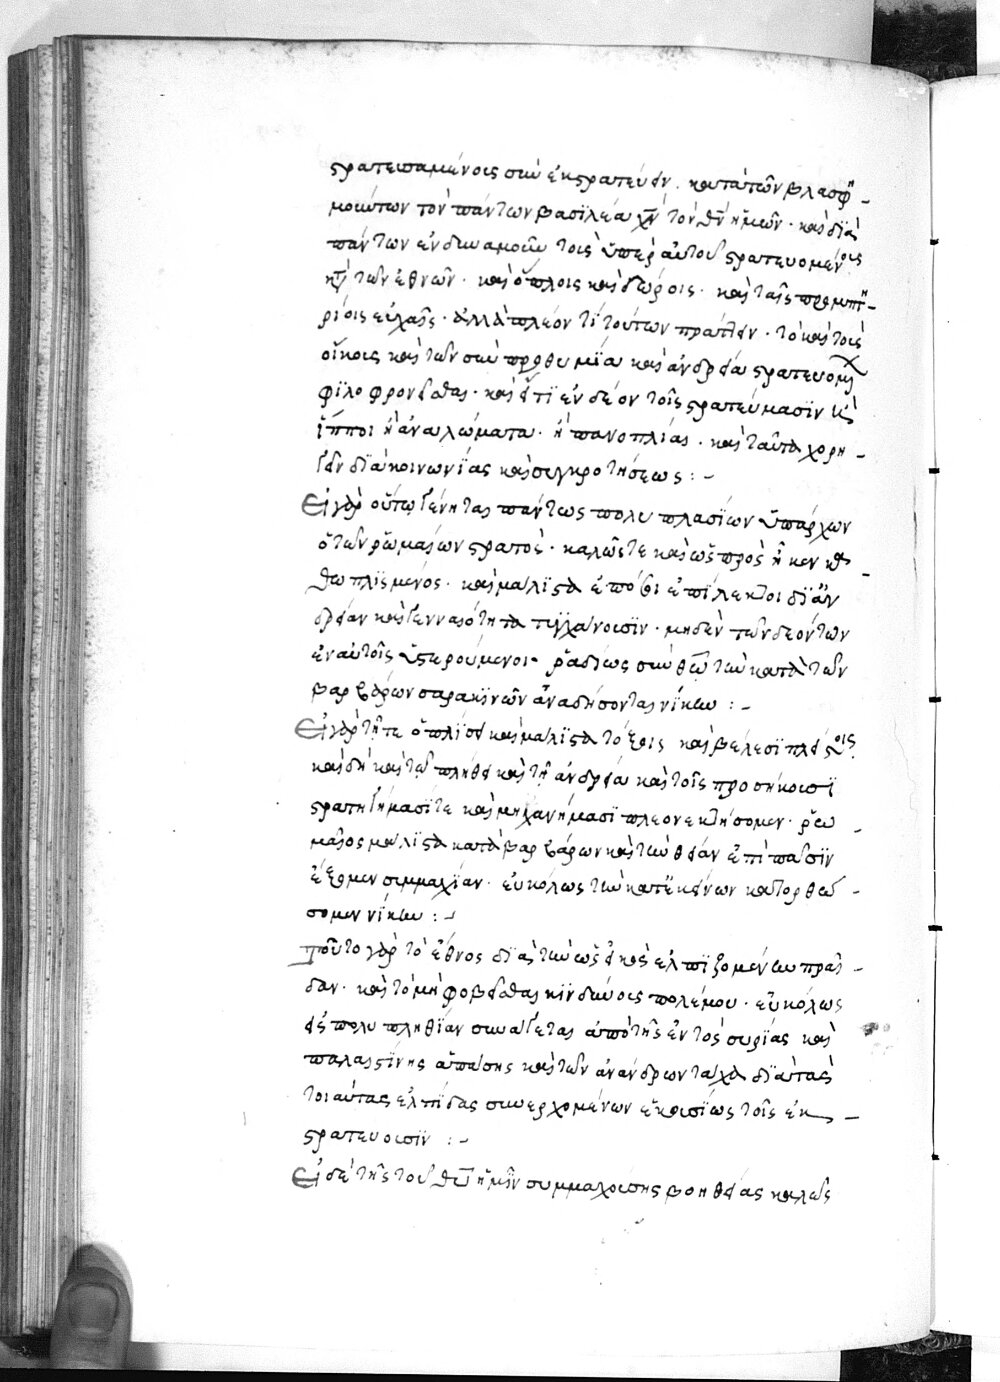 στρατευσαμένοις συνεκστρατεύειν. κατὰ τῶν βλασφη-
μούντων τὸν πάντων βασιλέα χν τὸν θν ἡμῶν· καὶ διὰ
πάντων ἐνδυναμοῦν τοὺς ὑπὲρ αὐτοῦ στρατευομένους
κατὰ τῶν ἐθνῶν· καὶ ὅπλοις καὶ δώροις· καὶ ταῖς προπεμπτη-
ρίοις εὐχαῖς· ἀλλὰ πλέον τι τούτων πράττειν· τὸ καὶ τοὺς
οἴκους καὶ τῶν σὺν προθυμία καὶ ἀνδρεία στρατευομένων
φιλοφρονεῖσθαι· καὶ εἴ τι ἐνδέον τοῖς στρατεύμασιν καὶ
ἵπποι ἢ ἀναλώματα· ἢ πανοπλίας· καὶ ταῦτα χορη-
γεῖν διὰ κοινωνίας καὶ συγκροτήσεως :-
Εἰ γὰρ οὕτω γένηται πάντως πολυπλασίων ὑπάρχων
ὁ τῶν ῥωμαίων στρατὸς· καλῶς τε καὶ ὡς προσῆκεν κα-
θωπλισμένος· καὶ μάλιστα ἐπόσοι ἐπίλεκτοι δι' ἀν-
δρείαν καὶ γενναιότητα τυγχάνουσιν· μηδὲν τῶν δεόντων
ἐν αὐτοῖς ὑστερούμενοι· ῥαδίως σὺν θῶ τὴν κατὰ τῶν
βαρβάρων σαρακινῶν ἀναδήσονται νίκην :-
Εἰ γὰρ τῆ τε ὁπλίσει καὶ μάλιστα τόξοις καὶ βέλεσι πλείστοις
καὶ δὴ καὶ τῶ πλήθει καὶ τῆ ἀνδρεία καὶ τοῖς προσήκουσι
στρατηγήμασί τε καὶ μηχανήμασι πλεονεκτήσομεν· ῥω-
μαῖοι μάλιστα κατὰ βαρβάρων καὶ τὴν θείαν ἐπὶ πᾶσιν
ἕξομεν συμμαχίαν· εὐκόλως τὴν κατ' ἐκείνων κατορθώ-
σομεν νίκην :-
Τοῦτο γὰρ τὸ ἔθνος διὰ τὴν ὡς εἰκὸς ἐλπιζομένην πραῖ-
δαν· καὶ τὸ μὴ φοβεῖσθαι κινδύνους πολέμου· εὐκόλως
εἰς πολυπληθίαν συνάγεται ἀπὸ τῆς ἐντὸς συρίας καὶ
παλαιστίνης ἁπάσης καὶ τῶν ἀνάνδρων τάχα διὰ τὰς
τοιαύτας ἐλπίδας συνερχομένων ἑκουσίως τοῖς ἐκ-
στρατεύουσιν :-
Εἰ δὲ τῆς τοῦ θῦ ἡμῖν συμμαχούσης βοηθείας καλῶς